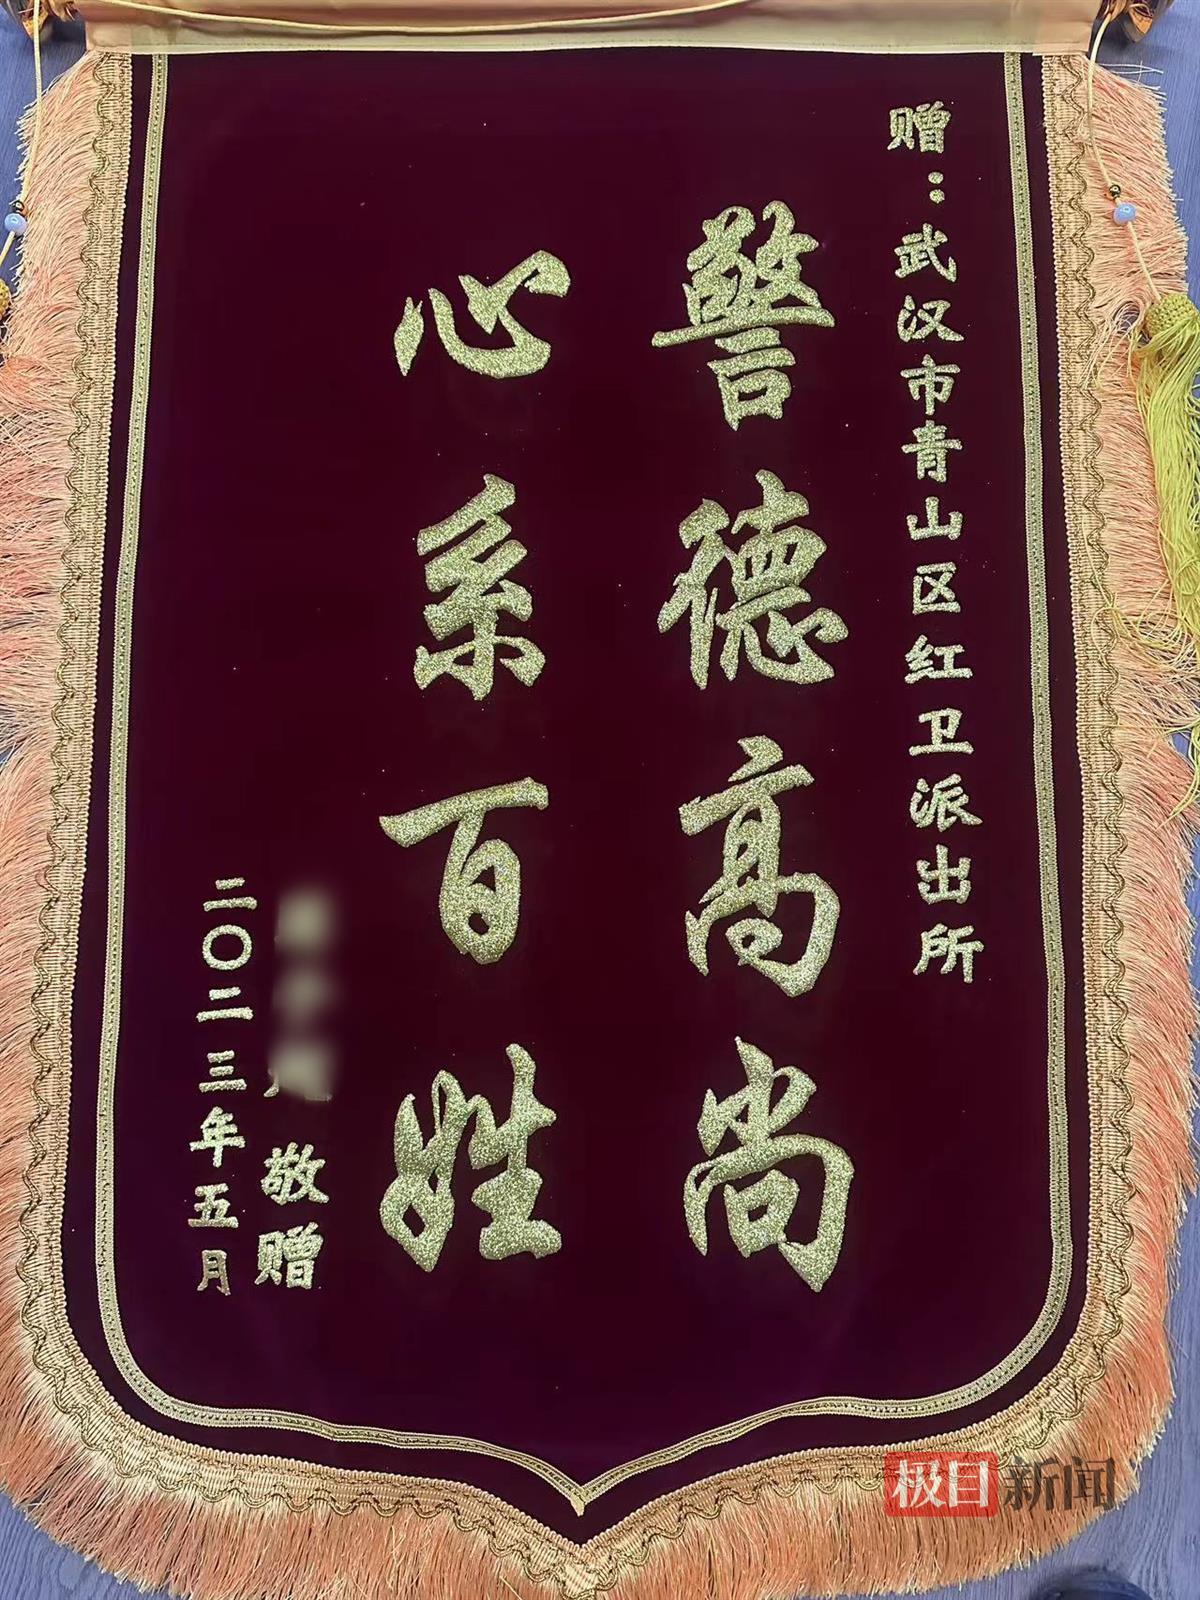 赠：武汉市青山区红卫派出所
警德高尚
心系百姓
敬赠
二〇二三年五月
极目新闻